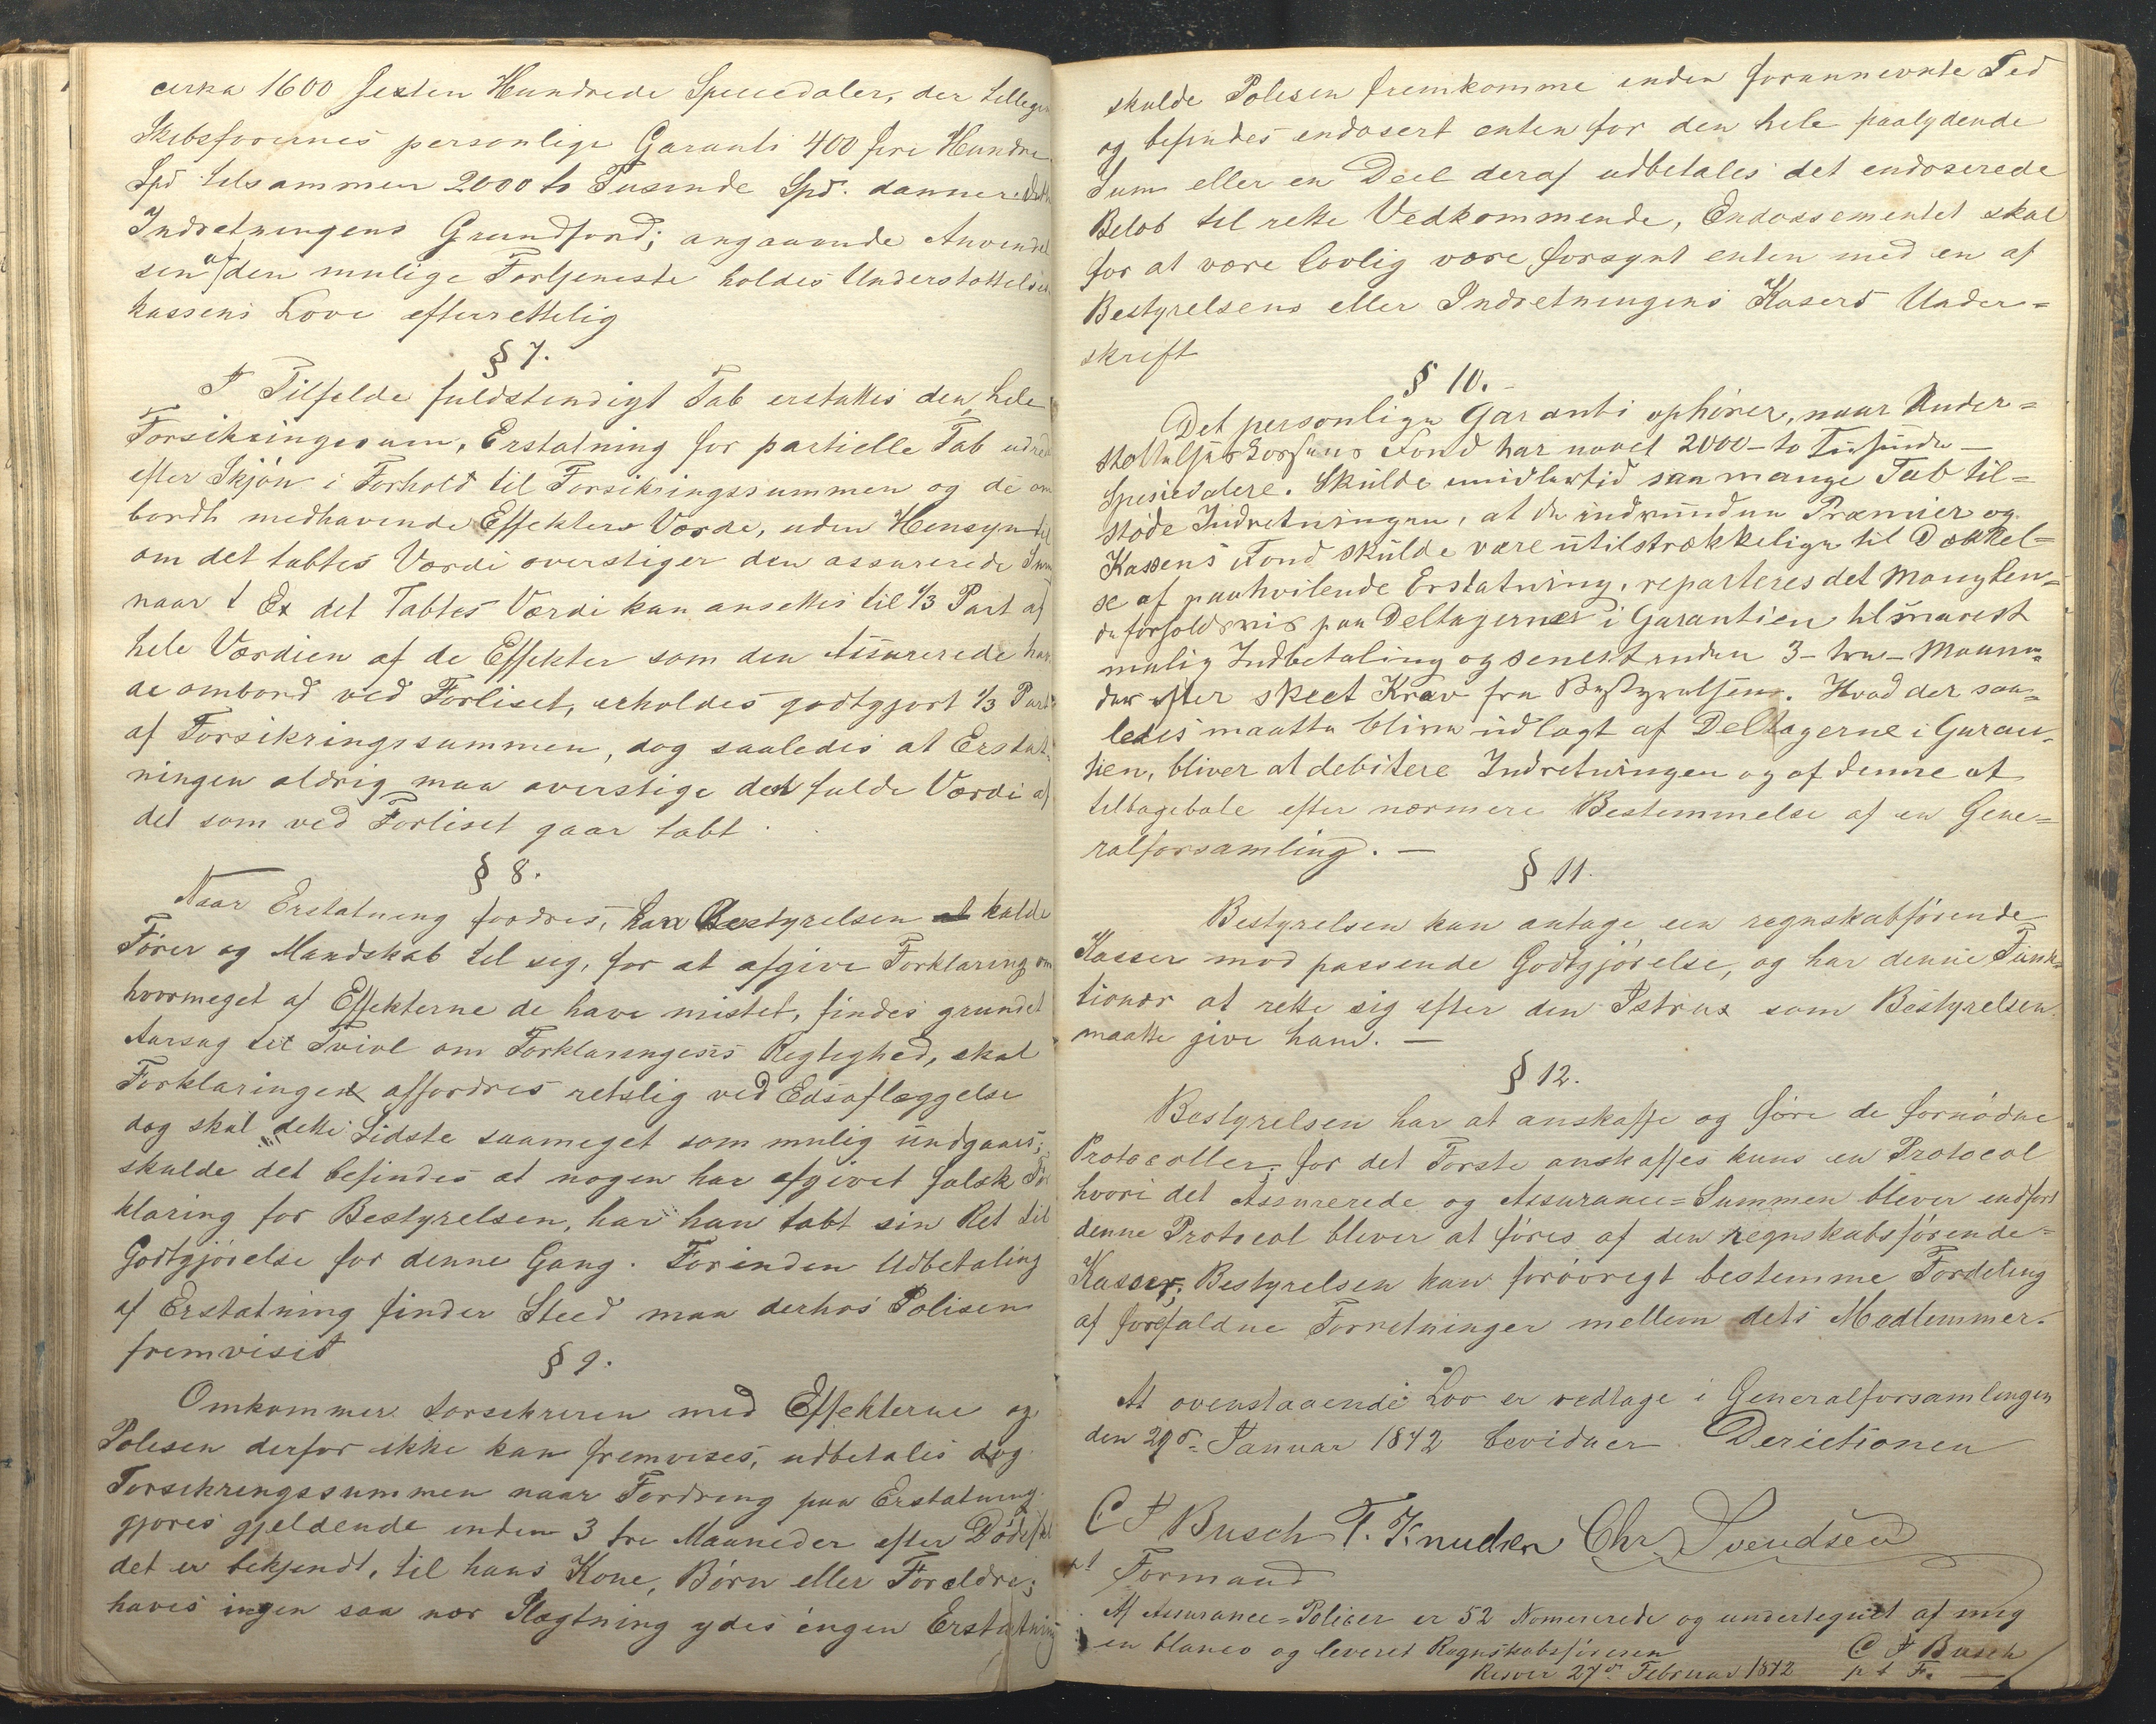 cirka 1600 sexten Hundrede Speciedaler, der tillegm
Skibsførernes personlige Garanti 400 fire Hundre
Spd tilsammen 2000 to Tusinde Spd. danner
Indretningens Grundfond; angaaende Anvendel
sen af den mulige Fortjeneste holdes Understøttelses
kassens Love efterrettelig
§ 7.
I Tilfelde fuldstendigt Tab erstattes den hele
Forsikringssum, Erstatning for partielle Tab udred
efter Skjøn i Forhold til Forsikringssummen og de om
bordt medhavende Effekters Værde, uden Hensyn til
om det tabtes Værdi overstiger den assurerede Sum
naar t Ex det Tabtes Værdi kan ansettes til 1/3 Part af
hele Værdien af de Effekter som den Assurerede hav
de ombord ved Forliset, erholdes godtgjort 1/3 Part
af Forsikringssummen, dog saaledes at Erstat
ningen aldrig maa overstige den fulde Værdi af
det som ved Forliset gaar tabt
§ 8.
Naar Erstatning fordres, kan Bestyrelsen at kalde
Fører og Mandskab til sig, for at afgive Forklaring om
hvormeget af Effekterne de have mistet, findes grundet
Aarsag til Tvivl om Forklaringens Rigtighed, skal
Forklaringen affordres retslig ved Edsaflæggelse
dog skal dette Sidste saameget som mulig undgaaes;
skulde det befindes at nogen har afgivet falsk For
klaring for Bestyrelsen, har han tabt sin Ret til
Godtgjørelse for denne Gang. Forinden Udbetaling
af Erstatning finder Sted maa derhos Polisen
fremvises
§ 9.
Omkommer Forsikreren med Effekterne og
Polisen derfor ikke kan fremvises, udbetales dog
Forsikringssummen naar Fordring paa Erstatning
gjøres gjeldende inden 3 tre Maaneder efter Dødsfal
det er bekjendt, til hans Kone, Børn eller Foreldre;
haves ingen saa nær Slægtning ydes ingen Erstatning
skulde Polisen fremkomme inden forannevnte Tid
og befindes endosert enten for den hele paalydende
Sum eller en Deel deraf udbetales det endoserede
Beløb til rette Vedkommende, Endossementet skal
for at være lovlig være forsynt enten med en af
Bestyrelsens eller Indretningens Kasers Under=
skrift
§ 10.
Det personlige Garanti ophører, naar Under=
støttelseskassens Fond har naaet 2000 - to Tusinde -
Spesiedalere. Skulde imidlertid saa mange Tab til=
støde Indretningen, at de indvundne Præmier og
Kassens Fond skulde være utilstrækkelige til Dækkel=
se af paahvilende Erstatning, reparteres det Manglen=
de forholdsvis paa Deltagerne i Garantien til snarest
mulig Indbetaling og senest inden 3 - tre - Maane=
der efter skeet Krav fra Bestyrelsen. Hvad der saa=
ledes maatte blive udlagt af Deltagerne i Garan=
tien, bliver at debitere Indretningen og af denne at
tilbagebale efter nærmere Bestemmelse af en Gene=
ralforsamling. —
§ 11.
Bestyrelsen kan antage een regnskabførende
Kasser mod passende Godtgjørelse, og har denne Funk=
tionær at rette sig efter den Istrux som Bestyrelsen
maatte give ham. —
§ 12.
Bestyrelsen har at anskaffe og føre de fornødne
Protocoller; for det Første anskaffes kuns en Protocol
hvori det Assurerede og Assurance=Summen bliver indført
denne Protocol bliver at føres af den regnskabsførende=
Kasser; Bestyrelsen kan forøvrigt bestemme Fordeling
af forefaldne Forretninger mellem dets Medlemmer.
At ovenstaaende Lov er vedtage i Generalforsamlingen
den 29de Januar 1842 bevidner Derectionen
C F Busch T. Knudsen Chr. Svendsen
p t Formand
Af Assurance=Policer er 52 Nomererede og undertegnet af mig
in blanco og leveret Regnskabsføreren
Risøer 27de Februar 1842
C F Busch
p t F.